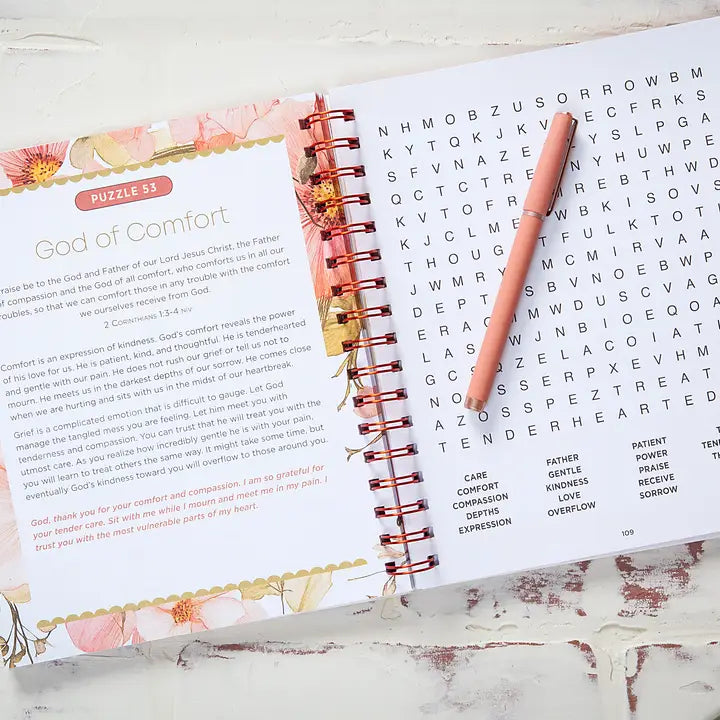 PUZZLE 53
God of Comfort
raise be to the God and Father of our Lord Jesus Christ, the Father
of compassion and the God of all comfort, who comforts us in all our
roubles, so that we can comfort those in any trouble with the comfort
we ourselves receive from God.
2 CORINTHIANS 1:3-4 NIV
Comfort is an expression of kindness. God's comfort reveals the power
of his love for us. He is patient, kind, and thoughtful. He is tenderhearted
and gentle with our pain. He does not rush our grief or tell us not to
mourn. He meets us in the darkest depths of our sorrow. He comes close
when we are hurting and sits with us in the midst of our heartbreak.
Grief is a complicated emotion that is difficult to gauge. Let God
manage the tangled mess you are feeling. Let him meet you with
tenderness and compassion. You can trust that he will treat you with the
utmost care. As you realize how incredibly gentle he is with your pain,
you will learn to treat others the same way. It might take some time, but
eventually God's kindness toward you will overflow to those around you.
God, thank you for your comfort and compassion. I am so grateful for
your tender care. Sit with me while I mourn and meet me in my pain. I
trust you with the most vulnerable parts of my heart.
N H M O B Z U S O R R O W B M
K Y T Q K J K V E C F R K S
S F V N A Z E Y S L P G A
Q C T C T R E N Y H U W P E
K V T O F R R E B T H W D
K J C L M E W B K I S O V S
T H O U G T F U L K T O T
J W M R Y M C M I R V A A
D E P T S B V N O E B W P
E R A M W D U S C V A G
L A S W J N B I O E Q O
G C Q Z E L A C O I A T
N O S S E R P X E V H M
A Z O S S P E Z T R E A T
T E N D E R H E A R T E D
CARE
COMFORT
COMPASSION
DEPTHS
EXPRESSION
FATHER
GENTLE
KINDNESS
LOVE
OVERFLOW
PATIENT
POWER
PRAISE
RECEIVE
SORROW
109